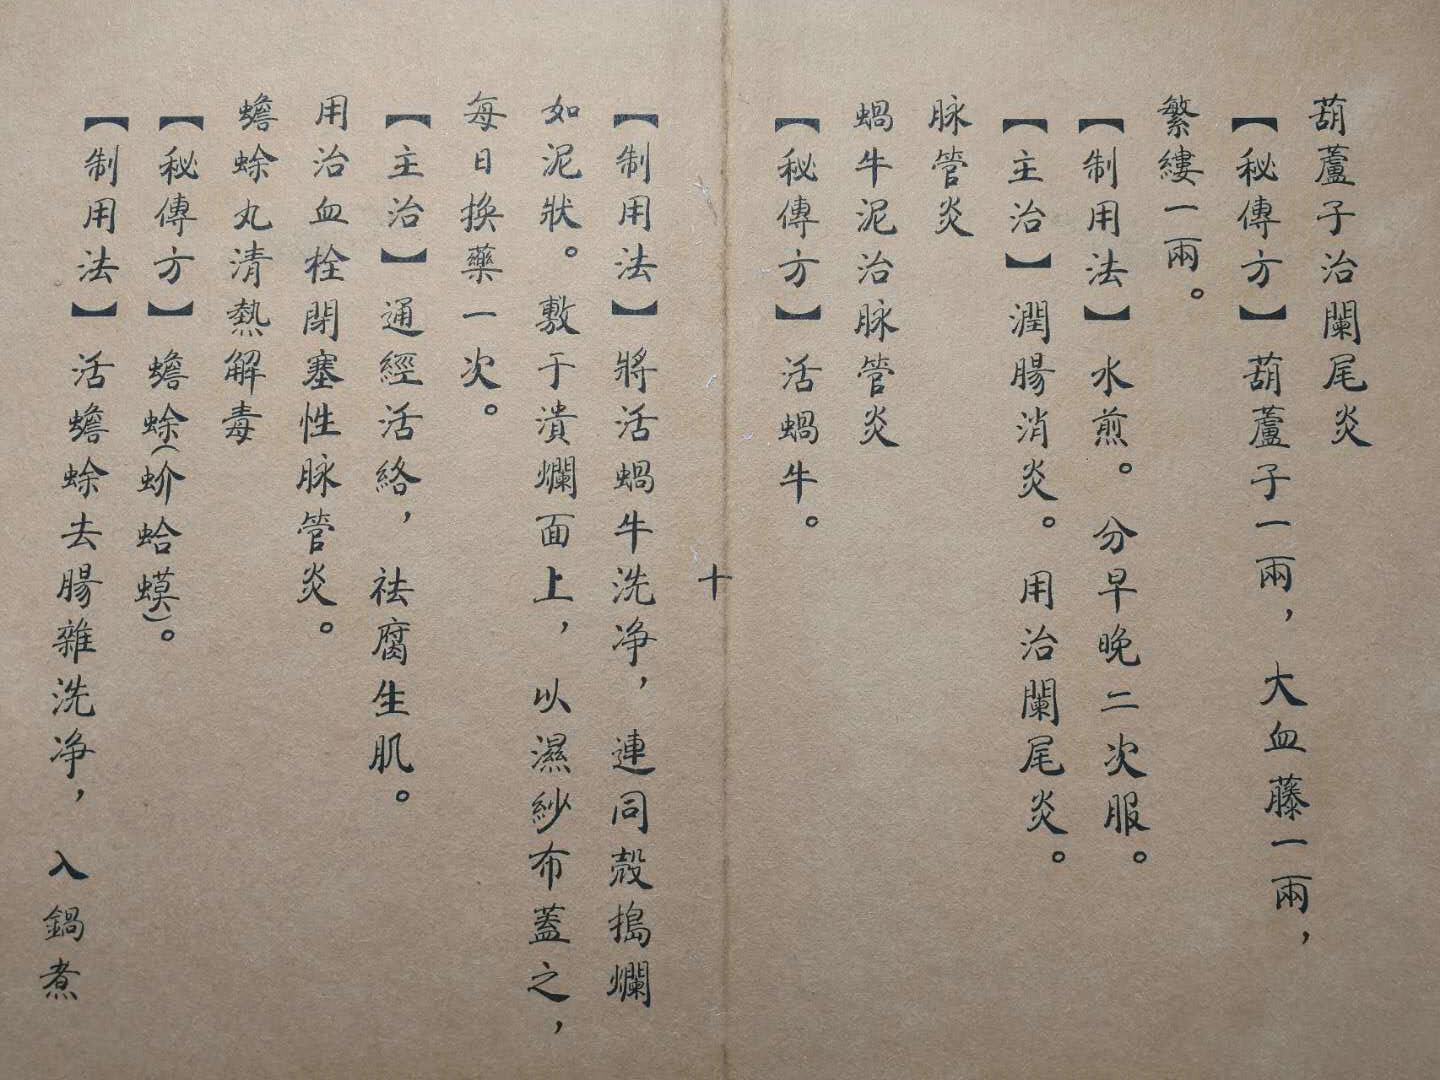 葫蘆子治闌尾炎
【秘傳方】葫蘆子一兩，大血藤一兩，
繁縷一兩。
【制用法】水煎。分早晚二次服。
【主治】潤腸消炎。用治闌尾炎。
脉管炎
蝸牛泥治脉管炎
【秘傳方】活蝸牛。
十
【制用法】將活蝸牛洗净，連同殼搗爛
如泥狀。敷于潰爛面上，以濕紗布蓋之，
每日换藥一次。
【主治】通經活絡，祛腐生肌。
用治血栓閉塞性脉管炎。
蟾蜍丸清熱解毒
【秘傳方】蟾蜍（蚧蛤蟆）。
【制用法】活蟾蜍去腸雜洗净，入鍋煮